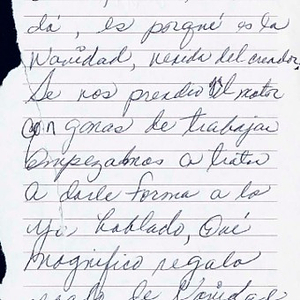 dá, es porqué es la
Navidad, venida del creador,
Se nos prendio el motor
con ganas de trabajar
Empezamos a tratar
A darle forma a lo
ya hablado, Qué
magnifico regalo
de Navidad